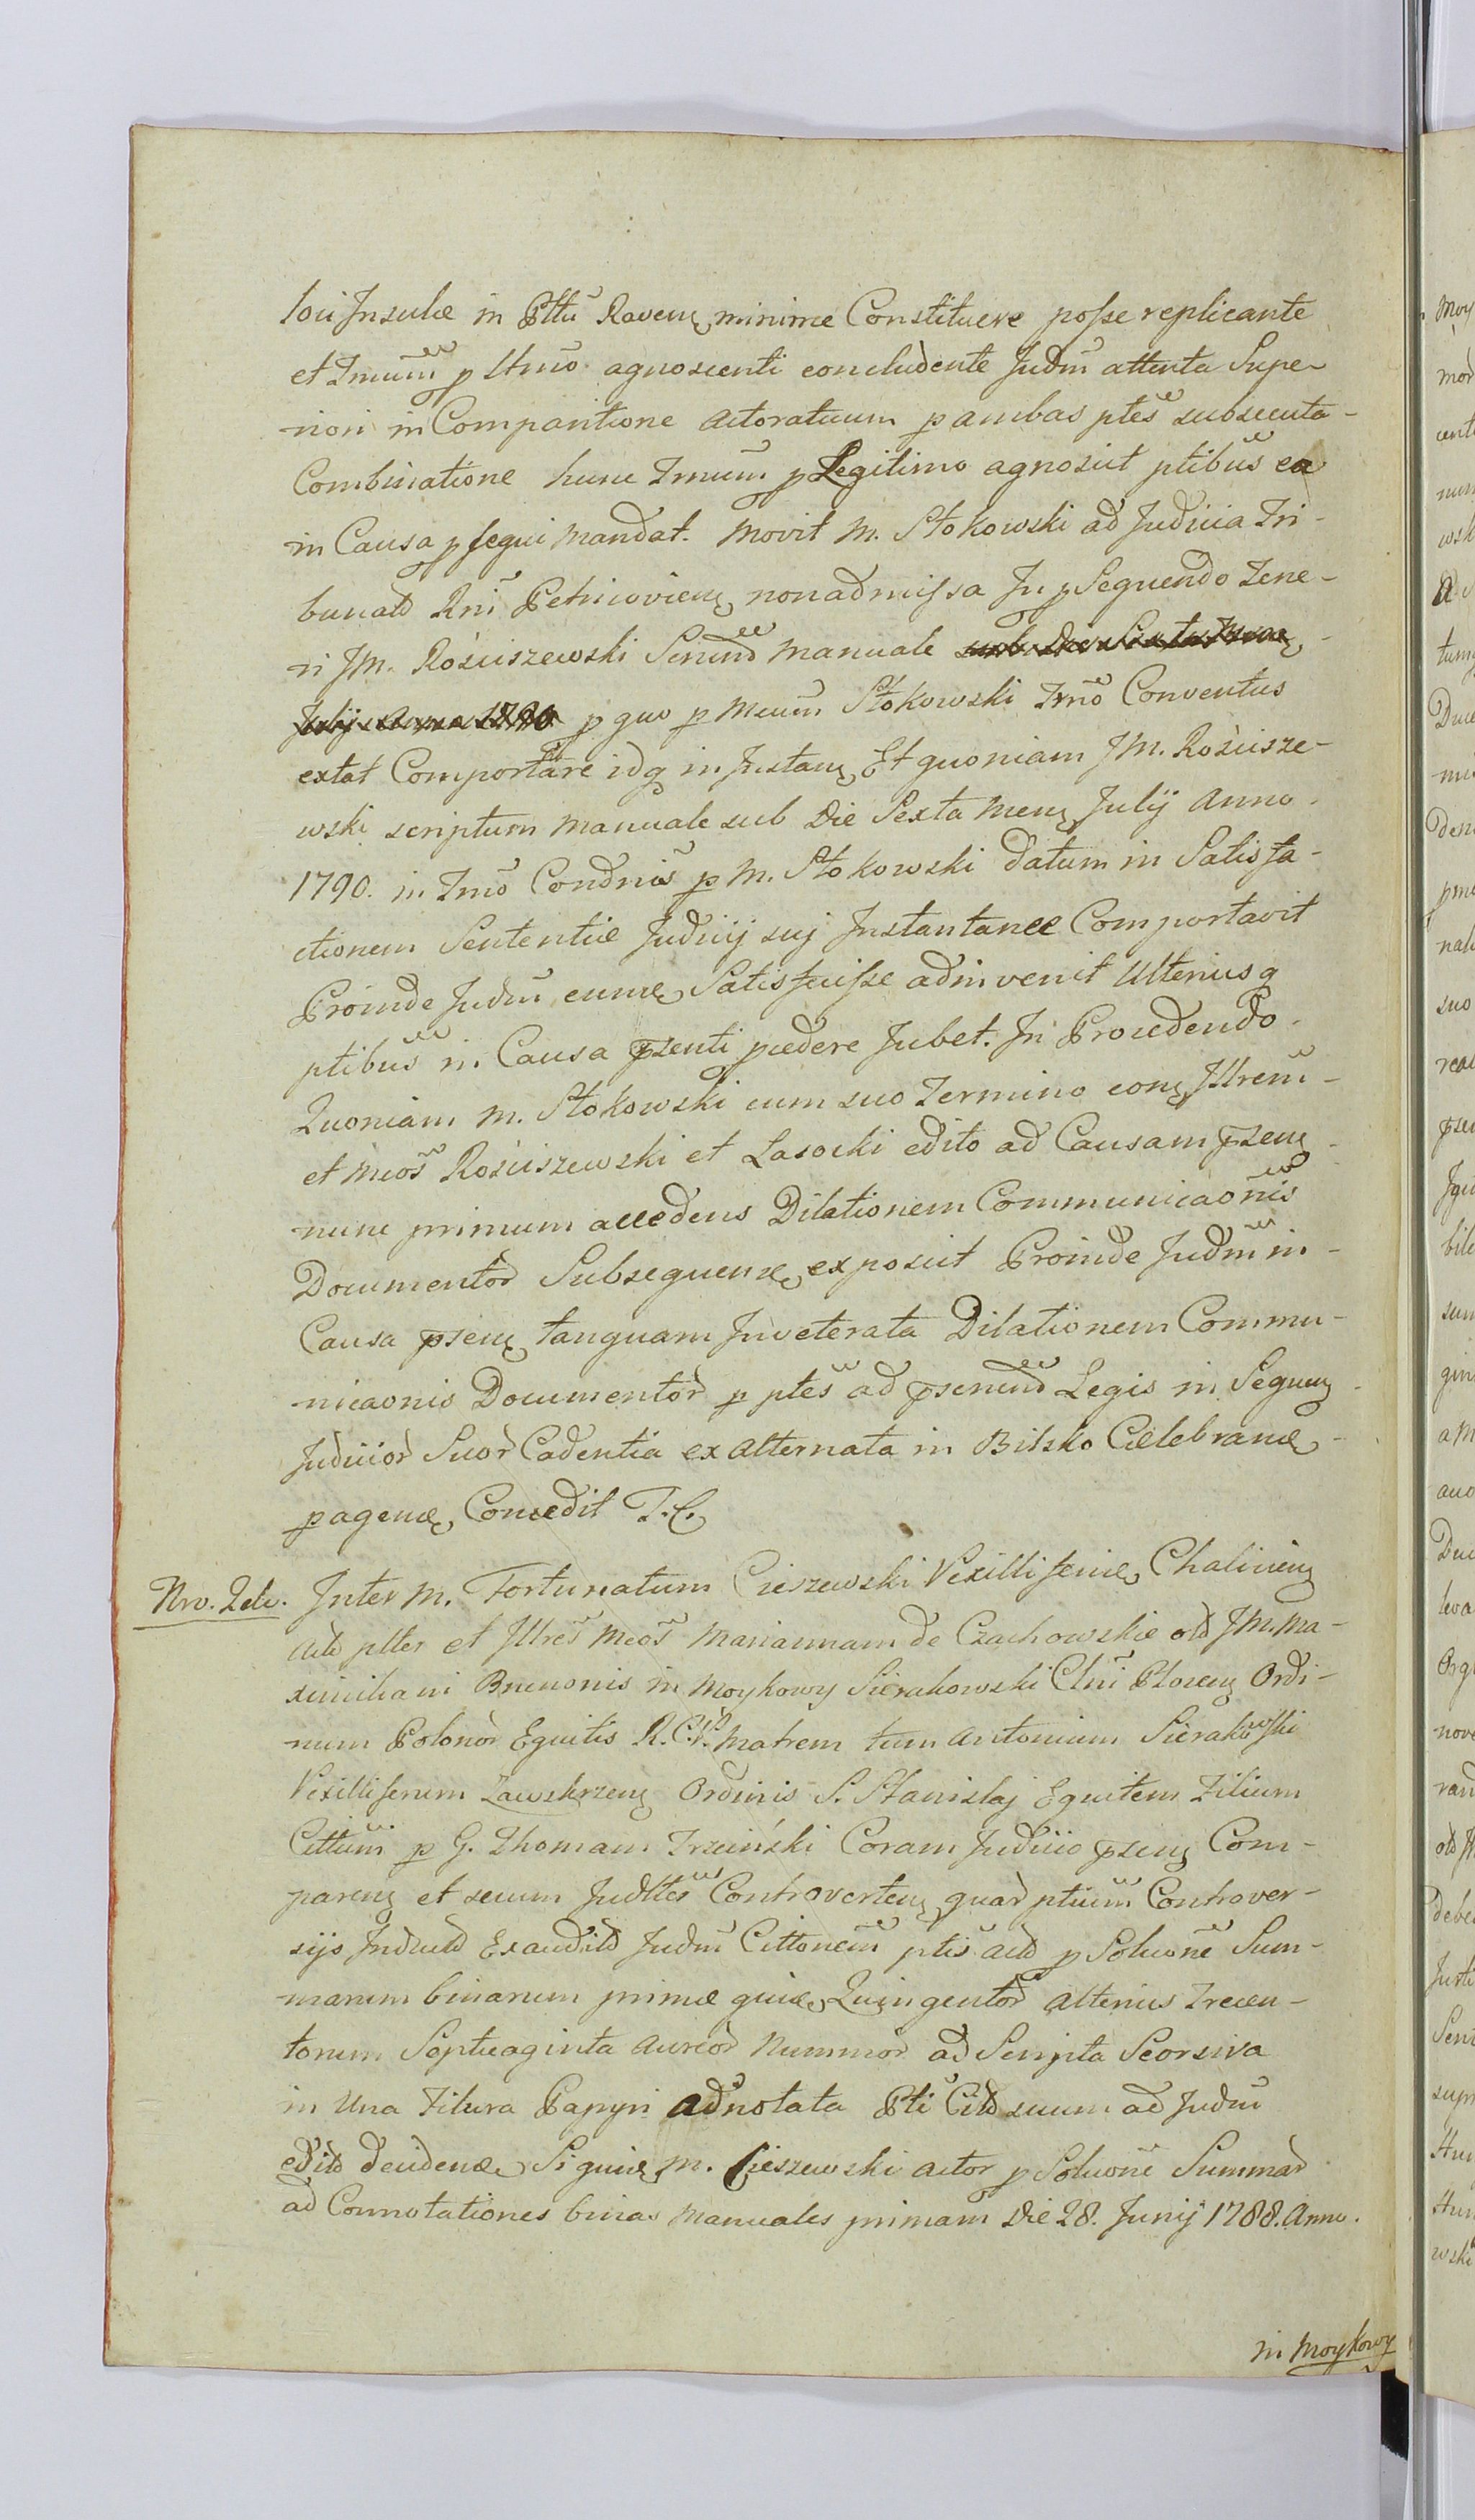 loci Insulæ in Pttũ Ravenę minime Constituere posse replicante
et Tmum̃ p ltmõ agnoscenti concludente Judm̃ attenta Supe-
riori in Comparitione Actoratuum p ambas ptes̃ subsecuta-
Combinatione hunc Tmum̃ p Legitimo agnoscit ptibus̃ ea
in Causa p segui mandat. Movit M. Stokowski ad Judicia Tri-
bunald Rnĩ Petricovienę non admissa In p Seguendo Tene-
ri JM. Rościszewski Scriend̃ manuale sub die Sexta Mens
Julij Anno 1790 p guo p Meum̃ Stokowski Tmõ Conventus
extat Comportare idq in Instanę Et guoniam JM. Rościsze-
wski scriptum manuale sub Die Sexta Menę Julij Anno
1790. in Tmõ Condnis̃ p M. Stokowski datum in Satisfa-
ctionem Sententiæ Judicij suj Instantanee Comportavit
Proinde Judm̃ eumę Satisfecisse adinvenit Ulteriusq
ptibus̃ in Causa p̄senti pcedere Jubet. In Procedendo
Quoniam M. Stokowski cum suo Termino conę Illrem̃
et Mcos̃ Rościszewski et Lasocki edito ad Causam p̄senę
nunc primum accedens Dilationem Communicaonis̃
Documentor̃ Subseguenę exposcit Proinde Judm̃ in
Causa p̄senę tanguam Inveterata Dilationem Commu-
nicaonis Documentor̃ p ptes̃ ad p̄scriend̃ Legis in Seguenę
Judicior̃ Suor̃ Cadentia ex Alternata in Bilsko Cælebranæ
pagenæ Concedit T.C.
Nro. 2do. Inter M. Fortunatum Cieszewski Vexilliferiæ Chalinenę
Actõ plter et Illres̃ Mcos̃ Mariannam de Czachowskie old JM. Ma-
ximiliani Brunonis in Moykowy Sierakowski Clnĩ Plocenę Ordi-
num Polonor̃ Eguitis R.C.P. Matrem tum Antonium Sierakowski
Vexilliferum Zawskrzenę Ordinis S. Stanislaj Eguitem Filium
Cittum̃ p G. Thomam Trzciński Coram Judicio p̄senę Com-
parenę et secum Judltes̃ Controvertenę guar̃ ptium̃ Controver-
sijs Induld Exaudild Judm̃ Cittonem̃ ptis̃ Actõ p Soluonẽ Sum-
marum binarum primæ guinæ Quingentor̃ alterius Trecen-
torum Septuaginta Aureor̃ Nummor̃ ad Scripta Seorsiva
in Una Filura Papyri Adnotata Ptĩ Citõ suum ad Judm̃
editõ decidenæ Si guidę M. Cieszewski Actor p Soluonẽ Summar̃
ad Connotationes binas Manuales primam Die 28. Junij 1788. Anno.
in Moykowy